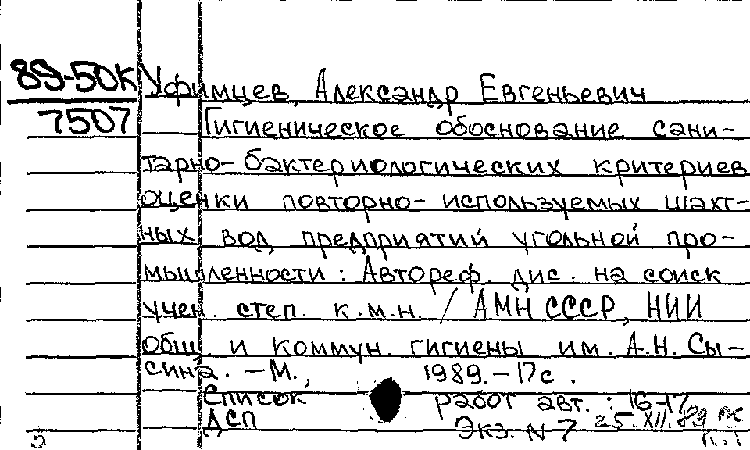 89-50К Уфимцев, Александр Евгеньевич
7507 Гигиеническое обоснование сани-
тарно-бактериологических критериев
оценки повторно-используемых шахт-
ных вод предприятий угольной про-
мышленности: Автореф. дис. на соиск
учен. степ. к.м.н. / АМН СССР, НИИ
общ. и коммун. гигиены им. А.Н. Сы-
сина. -М., 1989.-17с.
Список работ авт.: 16-17
ДСП Экз. N 7 25.XII.89